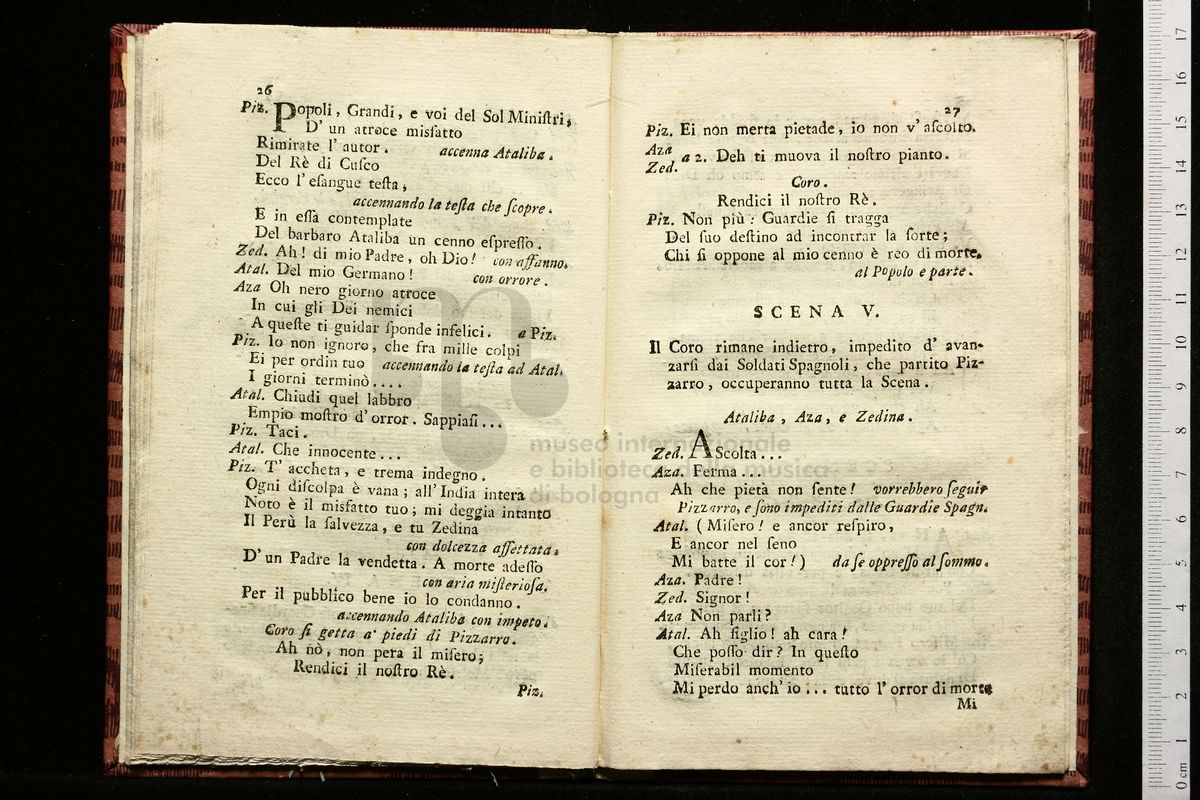 26
Piz. Popoli, Grandi, e voi del Sol Miniſtri,
D' un atroce misfatto
Rimirate l' autor. accenna Ataliba.
Del Rè di Cuſco
Ecco l' eſangue teſta,
accennando la teſta che ſcopre.
E in eſſa contemplate
Del barbaro Ataliba un cenno eſpreſſo.
Zed. Ah! di mio Padre, oh Dio! con affanno.
Atal. Del mio Germano! con orrore.
Aza Oh nero giorno atroce
In cui gli Dei nemici
A queſte ti guidar ſponde infelici. a Piz.
Piz. Io non ignoro, che fra mille colpi
Ei per ordin tuo accennando la teſta ad Atal.
I giorni terminò....
Atal. Chiudi quel labbro
Empio moſtro d' orror. Sappiaſi...
Piz. Taci.
Atal. Che innocente...
Piz. T' accheta, e trema indegno.
Ogni diſcolpa è vana; all' India intera
Noto è il misfatto tuo; mi deggia intanto
Il Perù la ſalvezza, e tu Zedina
con dolcezza affettata.
D' un Padre la vendetta. A morte adeſſo
con aria miſterioſa.
Per il pubblico bene io lo condanno.
accennando Ataliba con impeto.
Coro ſi getta a' piedi di Pizzarro.
Ah nò, non pera il miſero;
Rendici il noſtro Rè.
Piz.
27
Piz. Ei non merta pietade, io non v' aſcolto.
Aza
Zed. a 2. Deh ti muova il noſtro pianto.
Coro.
Rendici il noſtro Rè.
Piz. Non più: Guardie ſi tragga
Del ſuo deſtino ad incontrar la ſorte;
Chi ſi oppone al mio cenno è reo di morte.
al Popolo e parte.
SCENA V.
Il Coro rimane indietro, impedito d' avan-
zarſi dai Soldati Spagnoli, che partito Piz-
zarro, occuperanno tutta la Scena.
Ataliba, Aza, e Zedina.
Zed. AScolta...
Aza. Ferma...
Ah che pietà non ſente! vorrebbero ſeguir
Pizzarro, e ſono impediti dalle Guardie Spagn.
Atal. (Miſero! e ancor reſpiro,
E ancor nel ſeno
Mi batte il cor!) da ſe oppreſſo al ſommo.
Aza. Padre!
Zed. Signor!
Aza Non parli?
Atal. Ah figlio! ah cara!
Che poſſo dir? In queſto
Miſerabil momento
Mi perdo anch' io... tutto l' orror di morte
Mi
museo internazionale
e biblioteca della musica
di bologna
0 cm 1 2 3 4 5 6 7 8 9 10 11 12 13 14 15 16 17